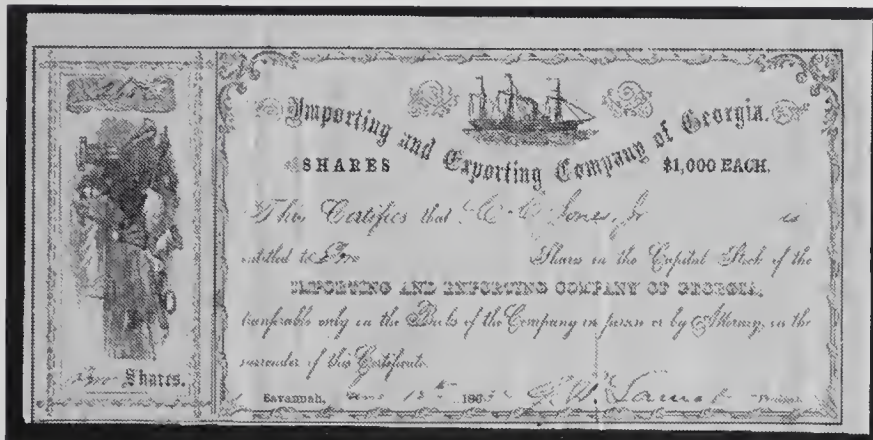 Importing and Exporting Company of Georgia.
SHARES $1,000 EACH.
This Certifies that C. C. Jones, Jr is
entitled to Two Shares in the Capital Stock of the
IMPORTING AND EXPORTING COMPANY OF GEORGIA,
tranferable only on the Books of the Company in person or by Attorney, on the
surrender of this Certificate.
Two Shares.
Savannah, 15th 186 G. B. Lamar President.